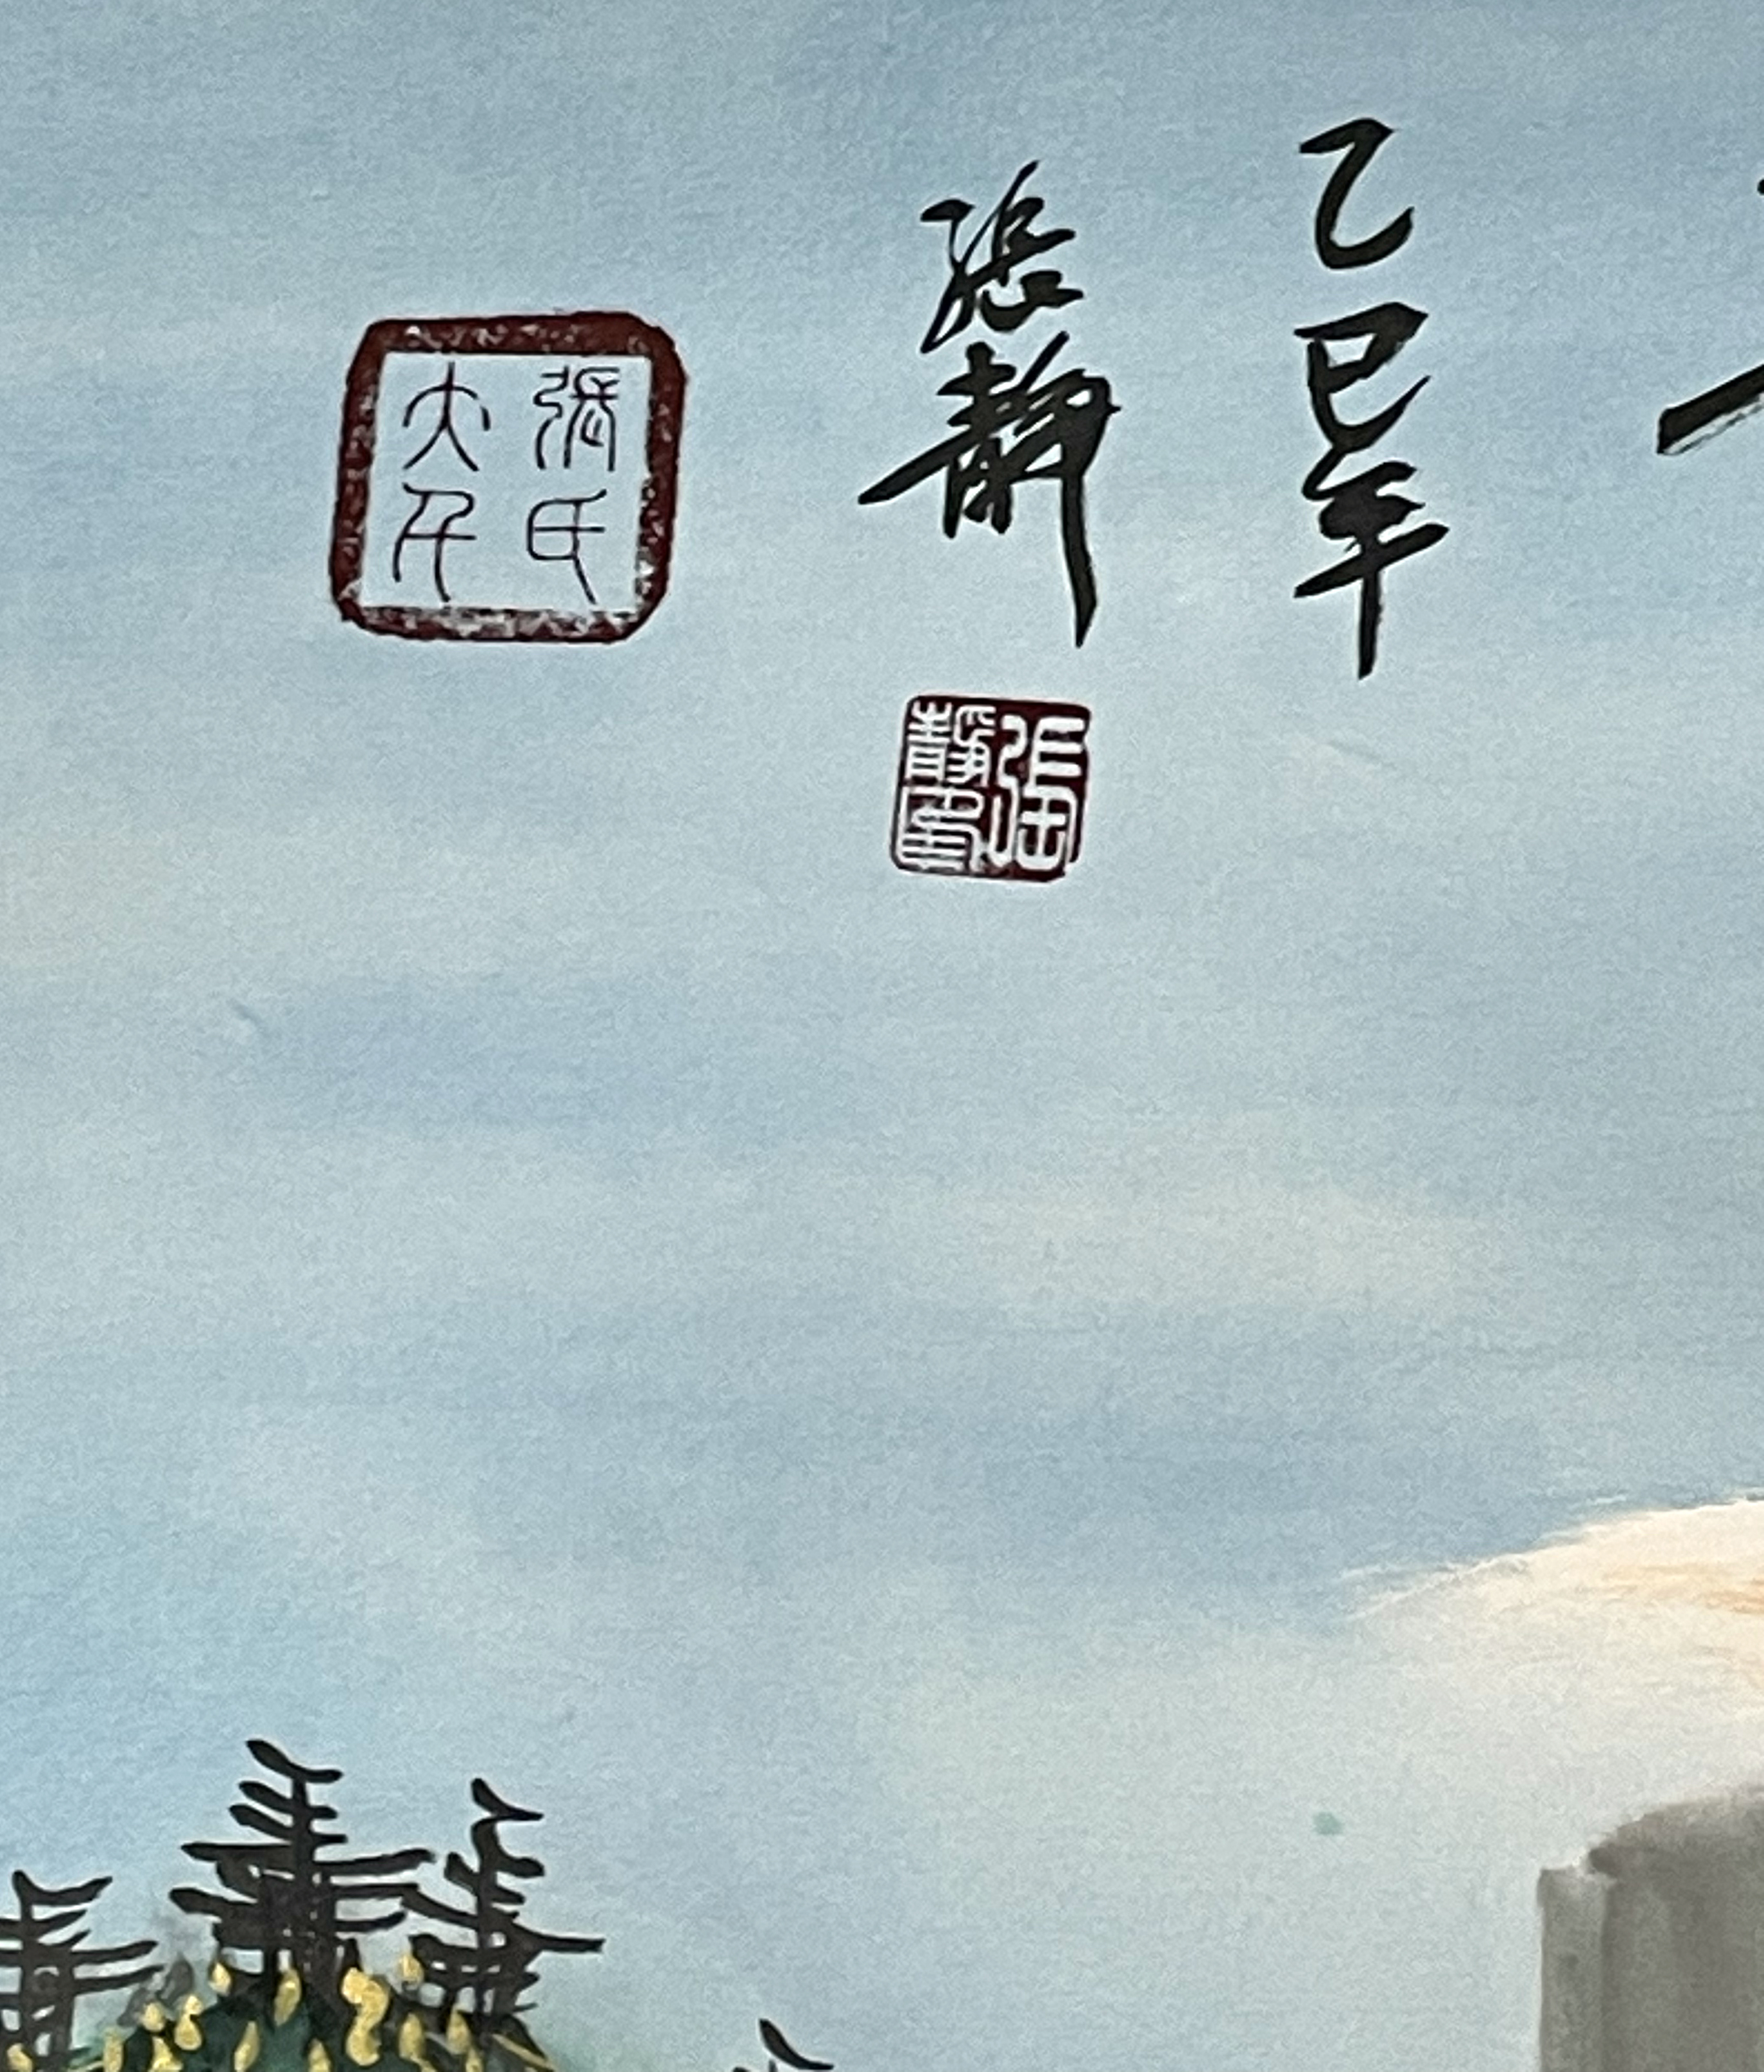 乙巳年
張靜
張氏
大千